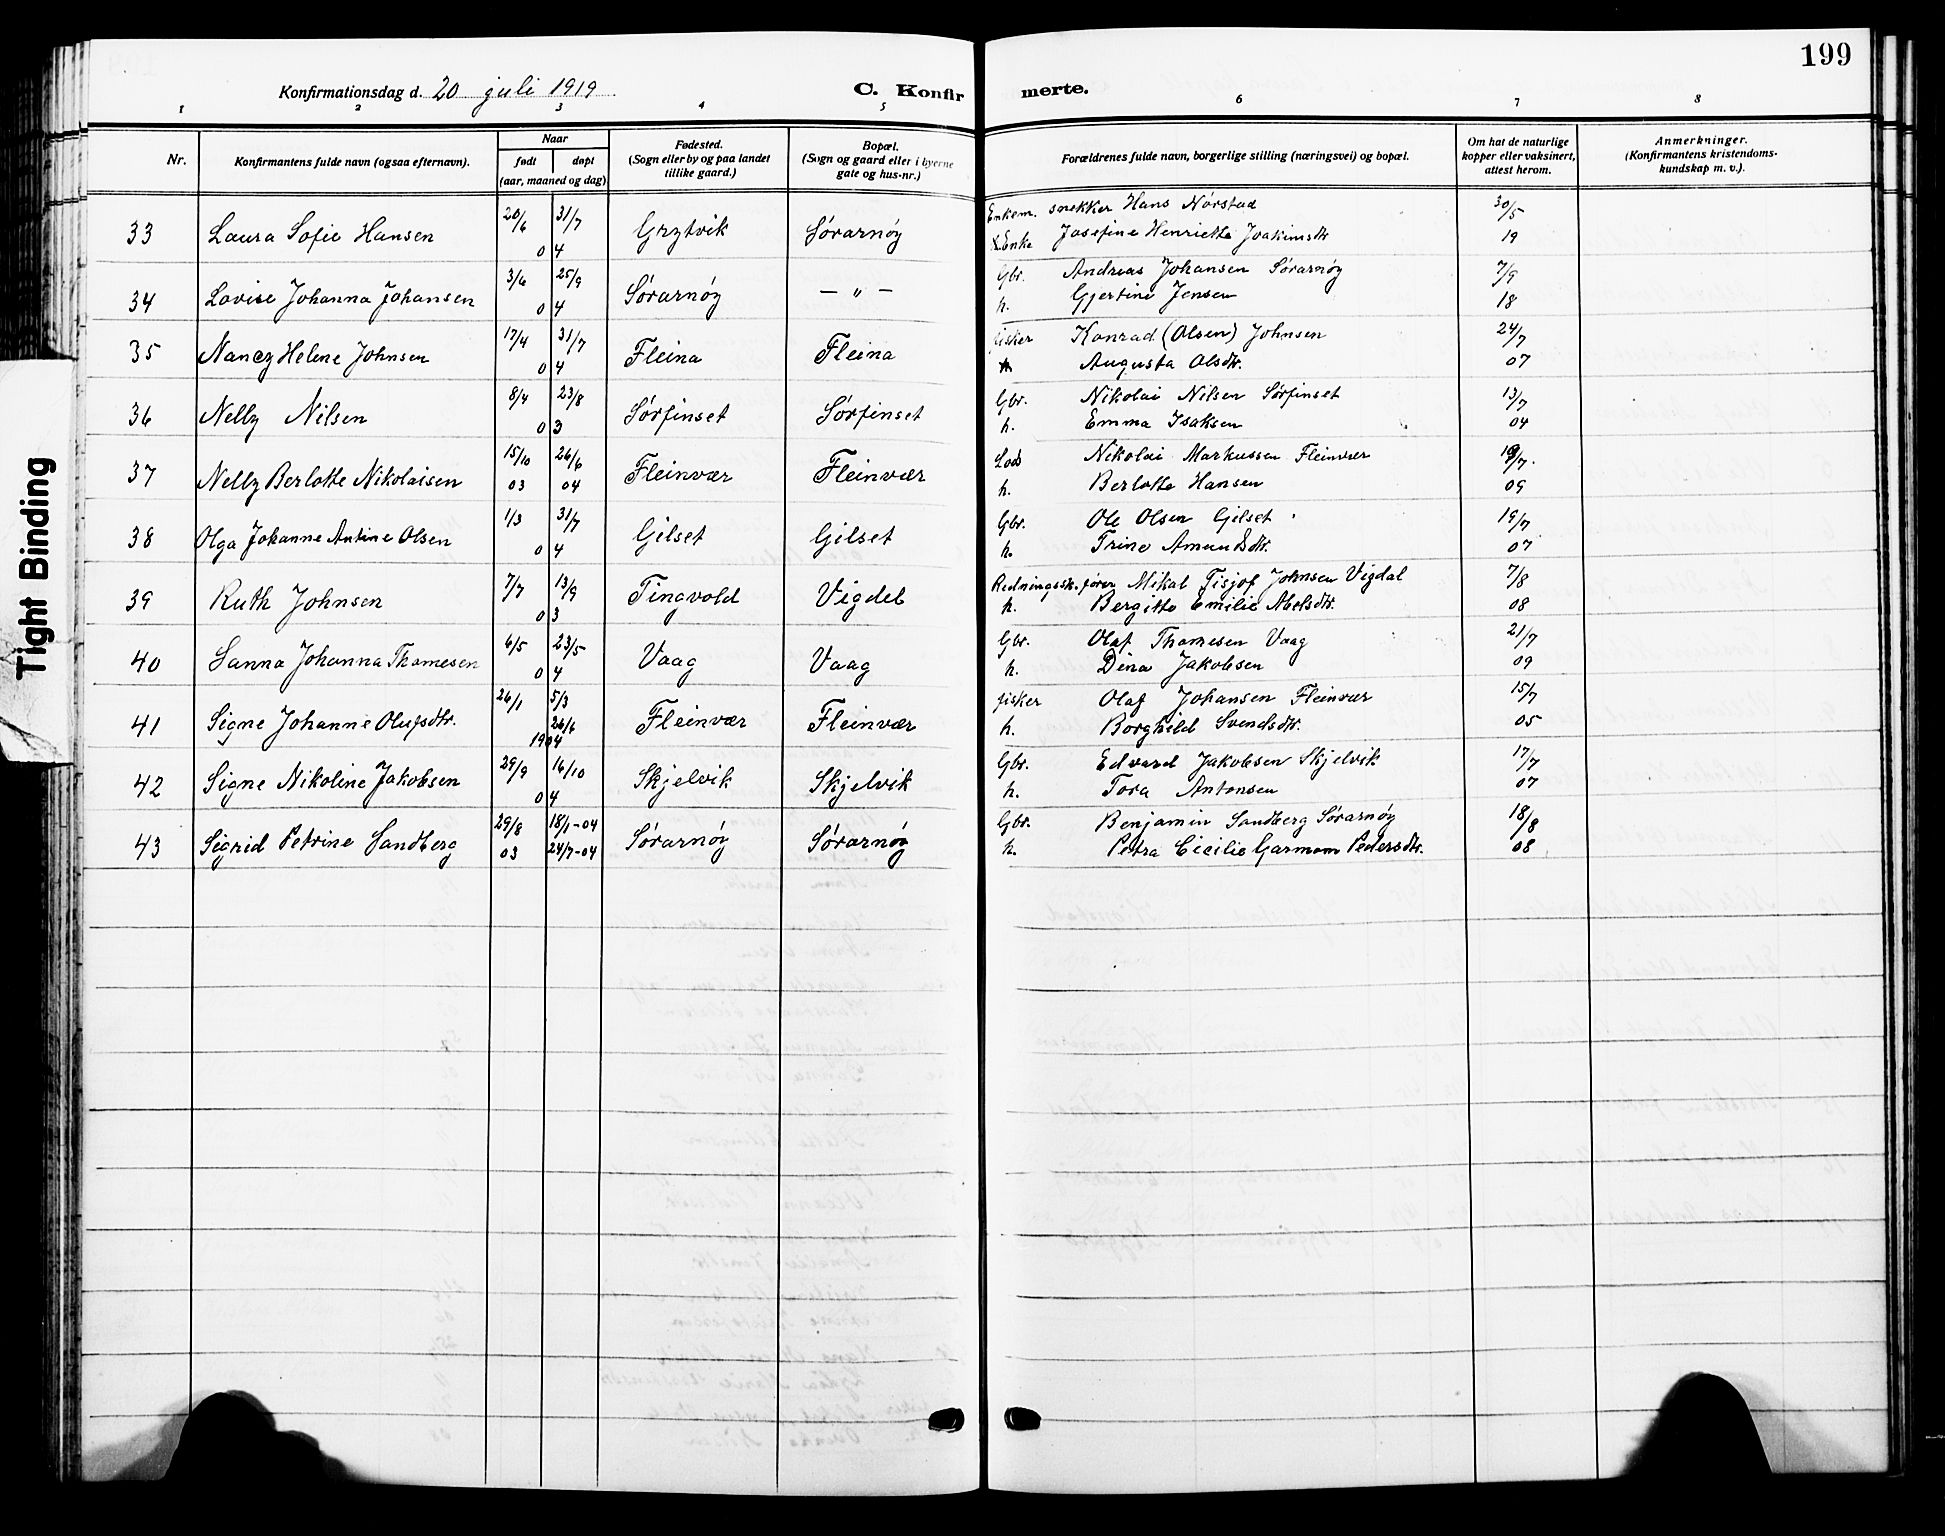 199
Konfirmationsdag d. 20 juli 1919
C. Konfirmerte.
1 2 3 4 5 6 7 8
Nr.
Konfirmantens fulde navn (ogsaa efternavn).
Naar
født døpt
(aar, maaned og dag)
Fødested.
(Sogn eller by og paa landet
tillike gaard.)
Bopæl.
(Sogn og gaard eller i byerne
gate og hus-nr.)
Forældrenes fulde navn, borgerlige stilling (næringsvei) og bopæl.
Om hat de naturlige
kopper eller vaksinert,
attest herom.
Anmerkninger.
(Konfirmantens kristendoms-
kundskap m. v.).
20/6 31/7 Enkem. snekker Hans Nørstad 30/5
33 Laura Sofie Hansen 04 Grytvik Sørarnøy Enke Josefine Henriette Joakimsdtr 19
3/6 25/9 Gbr. Andreas Johansen Sørarnøy 7/9
34 Lovise Johanna Johansen 04 Sørarnøy — " — h. Gjertine Jensen 18
17/4 31/7 fisker Konrad (Olsen) Johnsen 24/7
35 Nancy Helene Johnsen 04 Fleina Fleina h Augusta Olsdtr. 07
8/4 23/8 Gbr. Nikolai Nilsen Sørfinset 13/7
36 Nelly Nilsen 03 Sørfinset Sørfinset h. Emma Isaksen 04
15/10 26/6 Los Nikolai Markussen Fleinvær 19/7.
37 Nelly Berlotte Nikolaisen 03 04 Fleinvær Fleinvær h. Berlotte Hansen 09
1/3 31/7 Gbr. Ole Olsen Gilset 19/7
38 Olga Johanne Antine Olsen 04 Gilset Gilset h. Trine Amundsdtr. 07
7/7 13/9 Redningssk.fører Mikal Fisjof Johnsen Vigdal 7/8
39 Ruth Johnsen 03 Tingvold Vigdel h. Bergitte Emilie Abelsdtr. 08
6/5 23/5 Gbr. Olaf Thomesen Vaag 21/7
40 Sanna Johanna Thomesen 04 Vaag Vaag h. Dina Jakobsen 09
26/1 5/3 fisker Olaf Johansen Fleinvær 15/7
41 Signe Johanne Olufsdtr. 26/6 Fleinvær Fleinvær h. Borghild Svendsdtr. 05
1904
29/9 16/10 Gbr. Edvard Jakobsen Skjelvik 17/7
42 Signe Nikoline Jakobsen 04 Skjelvik Skjelvik h. Tora Antonsen 07
29/8 18/1-04 Gbr. Benjamin Sandberg Sørarnøy 18/8
43 Sigrid Petrine Sandberg 03 24/7-04 Sørarnøy Sørarnøy h. Petra Cicilie Garmann Pedersdtr. 08
Tight Binding